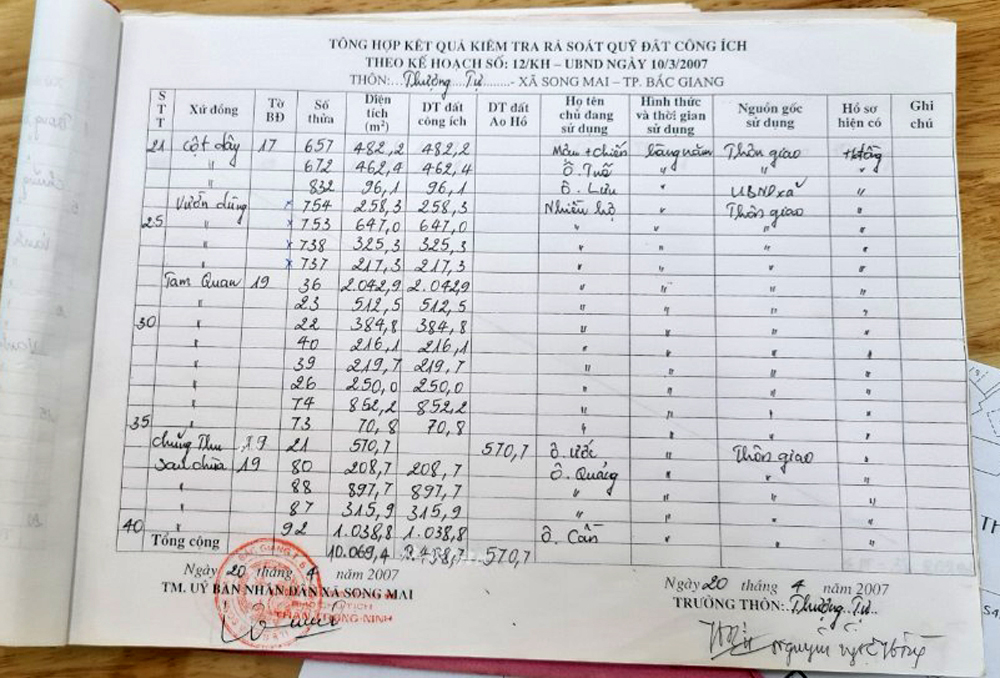 TỔNG HỢP KẾT QUẢ KIỂM TRA RÀ SOÁT QUỸ ĐẤT CÔNG ÍCH
THEO KẾ HOẠCH SỐ: 12/KH – UBND NGÀY 10/3/2007
THÔN:...Thượng Tự...- XÃ SONG MAI – TP. BẮC GIANG
STT Xứ đồng Tờ BĐ Số thửa Diện tích (m²) DT đất công ích DT đất Ao Hồ Họ tên chủ đang sử dụng Hình thức và thời gian sử dụng Nguồn gốc sử dụng Hồ sơ hiện có Ghi chú
21 Cột dây 17 657 482,2 482,2 Mậu + chiến hàng năm Thôn giao
" 672 462,4 462,4 Ô. Tuế " " "
" 832 96,1 96,1 Ô. Lưu " UBND xã "
Vườn dùng × 754 258,3 258,3 Nhiều hộ " Thôn giao "
25 " × 753 647,0 647,0 " " " "
" × 738 325,3 325,3 " " " "
" × 737 217,3 217,3 " " " "
Tam Quan 19 36 2.042,9 2.042,9 " " " "
" 23 512,5 512,5 " " " "
30 " 22 384,8 384,8 " " " "
" 40 216,1 216,1 " " " "
" 39 219,7 219,7 " " " "
" 26 250,0 250,0 " " " "
" 74 852,2 852,2 " " " "
35 " 73 70,8 70,8 " " " "
Chũng Thu 19 21 570,7 570,7 Ô. Ước " Thôn giao "
Sau chùa 19 80 208,7 208,7 Ô. Quảng " " "
" 88 897,7 897,7 " " " "
" 87 315,9 315,9 " " " "
40 " 92 1.038,8 1.038,8 Ô. Cấn " " "
Tổng cộng 10.069,4 9.498,7 570,7
Ngày 20 tháng 4 năm 2007
TM. UỶ BAN NHÂN DÂN XÃ SONG MAI
CHỦ TỊCH
TRỌNG NINH
Ngày 20 tháng 4 năm 2007
TRƯỞNG THÔN: Thượng Tự